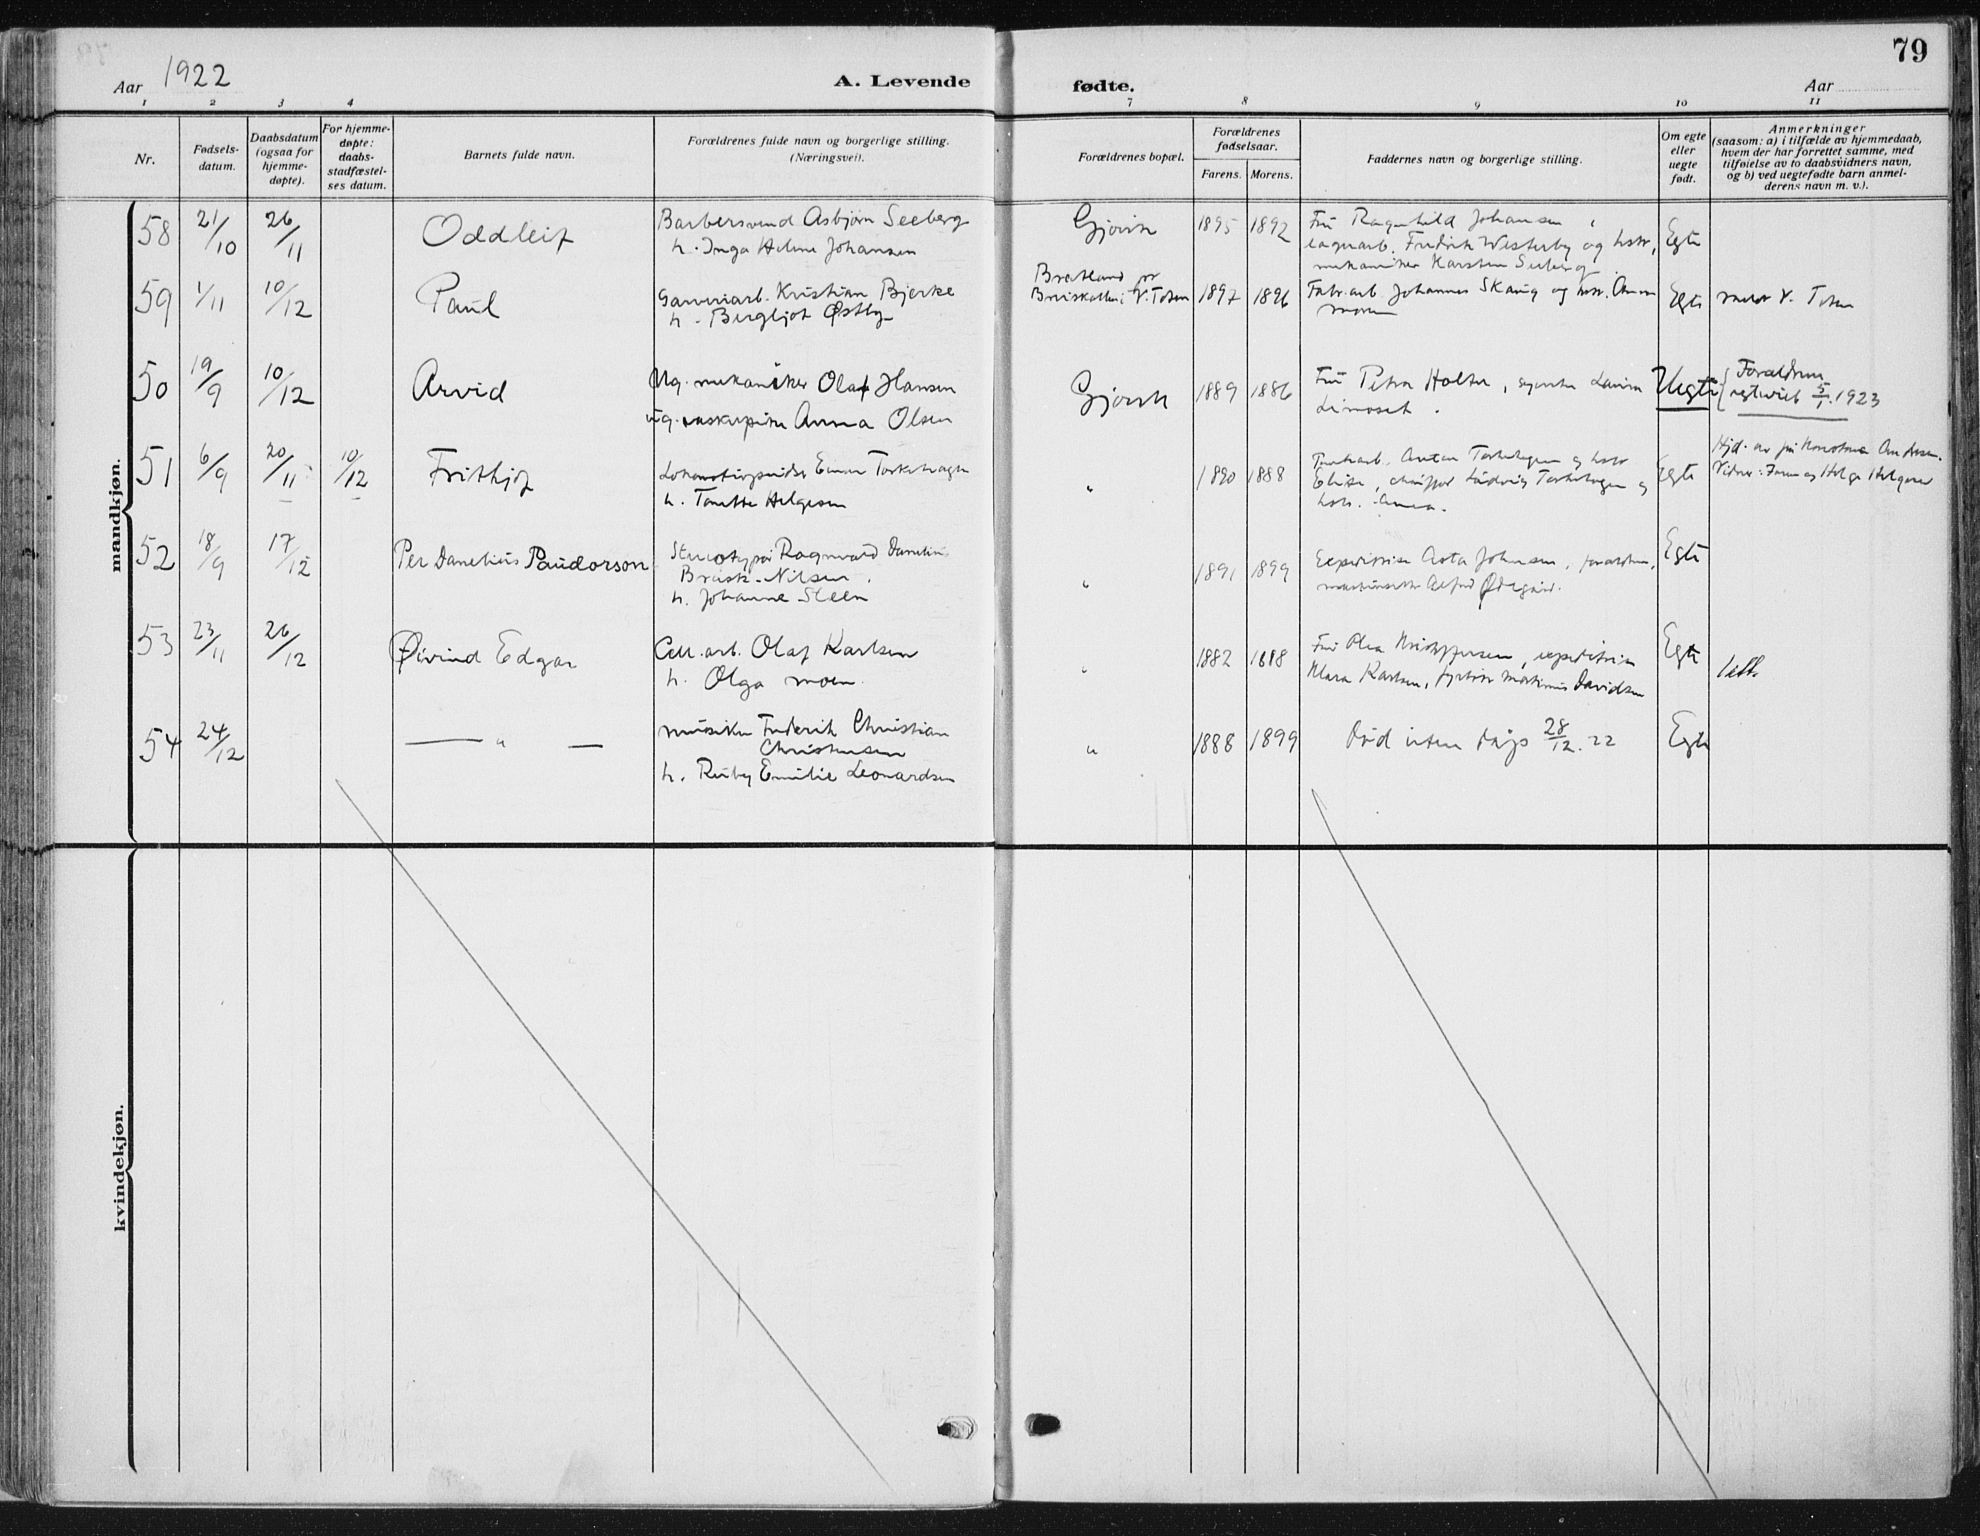 79
Aar 1922
A. Levende
fødte.
Aar
1 2 3 4
7 8 9 10 11
Nr.
Fødsels-
datum.
Daabsdatum
(ogsaa for
hjemme-
døpte).
For hjemme-
døpte:
daabs-
stadfæstel-
ses datum.
Barnets fulde navn.
Forældrenes fulde navn og borgerlige stilling.
(Næringsvei).
Forældrenes bopæl.
Forældrenes
fødselsaar.
Farens. Morens.
Faddernes navn og borgerlige stilling.
Om egte
eller
uegte
født.
Anmerkninger
(saasom: a) i tilfælde av hjemmedaab,
hvem der har forrettet samme, med
tilføielse av to daabsvidners navn,
og b) ved uegtefødte barn anmel-
derens navn m. v.).
mandkjøn.
58 21/10 26/11 Oddleif
Barbersvend Asbjørn Seeberg
h. Inga Helene Johansen
Gjøvik 1895 1892
Fru Ragnhild Johansen,
Fredrik Westerby og hstr,
mekaniker Karsten Seeberg
Egte
59 1/11 10/12 Paul
Garveriarb. Kristian Bjerke
h. Bergljot Østby
V. Toten 1897 1896
Fabr.arb. Johannes Skaug og hstr. Anna
Moen
Egte
V. Toten
50 19/9 10/12 Arvid
Ug. mekaniker Olaf Hansen
ug. Anna Olsen
Gjøvik 1889 1886
Fru Petra Holter, Laura
Uegte
Forældrene
egteviet 5/1. 1923
51 6/9 20/11 10/12 Frithjof
h. Tonette Helgesen
" 1890 1888
Anton
Elise, chauffør Ludvig
hstr. Anna.
Egte
Hjd. av
Vidner: og Helge Helgesen
52 18/9 17/12 Per Danelius Paudorson
Stereotypør Ragnvald Danelius
Nilsen.
h. Johanne Steen
" 1891 1899
Expeditrise Asta Johnsen, forældrene,
Alfred Ødegård.
Egte
53 23/11 26/12 Øivind Edgar
Cell.arb. Olaf Karlsen
h. Olga Moen
" 1882 1888
Fru Olea Kristoffersen, expeditrise
Klara Karlsen, fyrbøter Martinius Davidsen
Egte
1 att.
54 24/12 — " —
musiker Frederik Christian
Christensen
h. Ruby Emilie Leonardsen
" 1888 1899
Død uten dåp 28/12. 22
Egte
kvindekjøn.